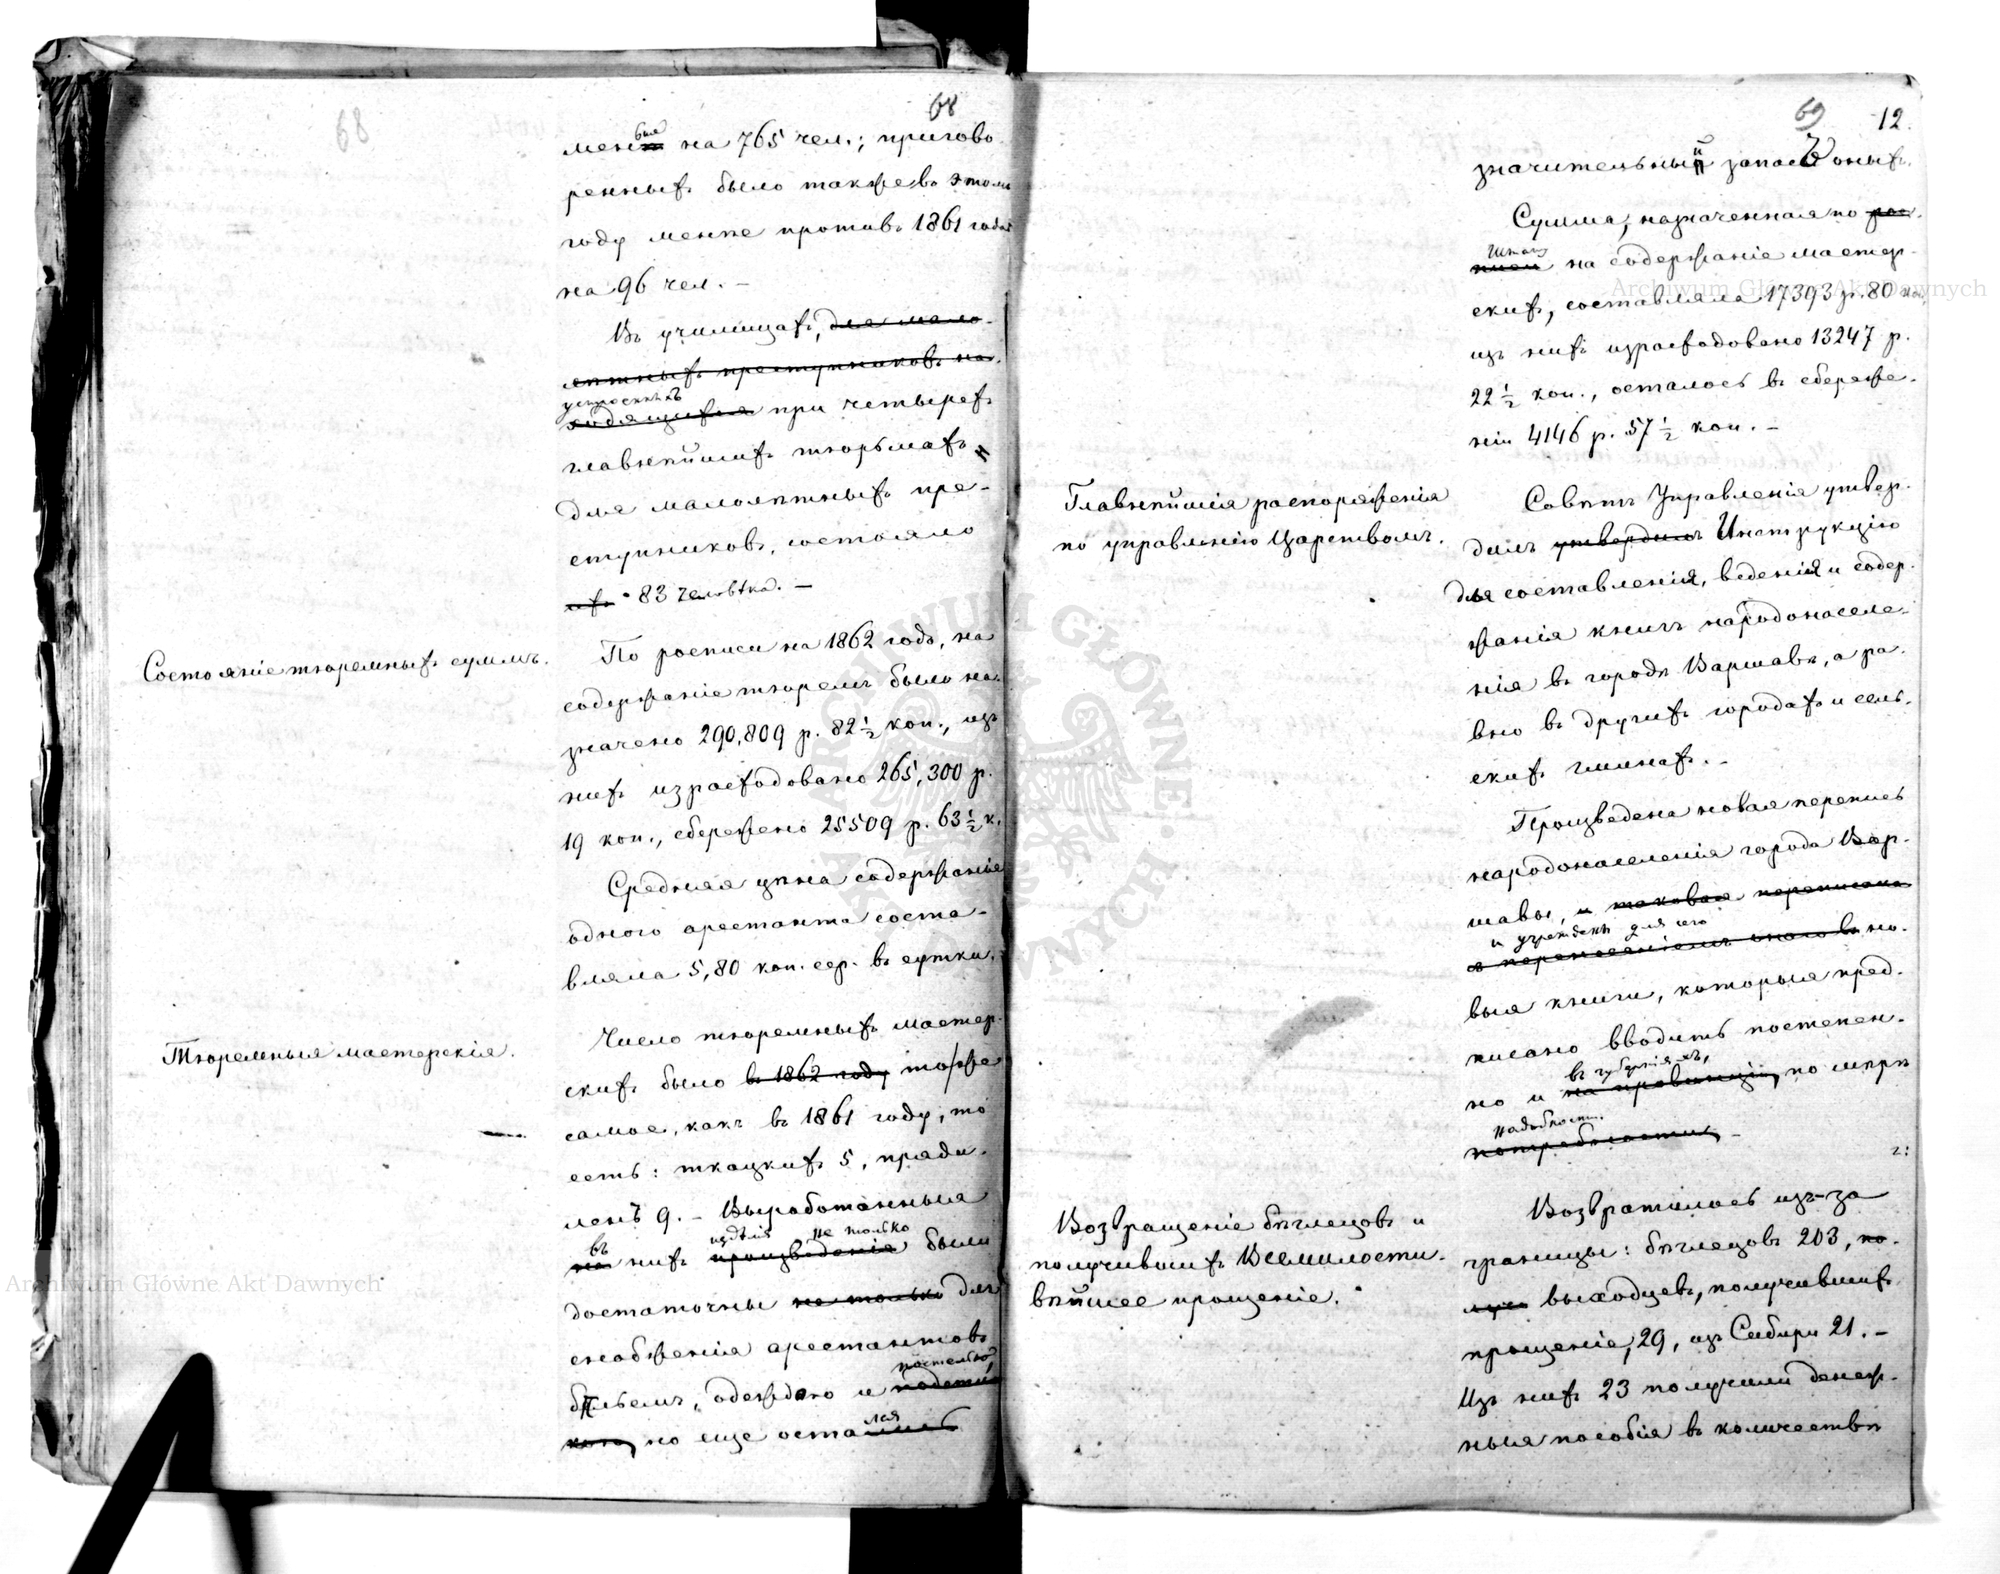 68
68
менѣе на 765 чел.; пригово
ренныхъ было также въ этомъ
году менѣе противъ 1861 года
на 96 чел. —
Въ училищахъ, для мало-
лѣтныхъ преступниковъ на-
устроенныхъ
ходящихся при четырехъ
главнѣйшихъ тюрьмахъ
для малолѣтныхъ пре-
ступниковъ, состояло
ихъ 83 человѣка. —
Состояніе тюремныхъ суммъ.
По росписи на 1862 годъ, на
содержаніе тюремъ было на-
значено 290,809 р. 82½ коп., изъ
нихъ израсходовано 265,300 р.
19 коп., сбережено 25509 р. 63½ к.
Средняя цѣна содержанія
одного арестанта соста-
вляла 5,80 коп. сер. въ сутки.
Тюремныя мастерскія.
Число тюремныхъ мастер-
скихъ было въ 1862 году тоже
самое, какъ въ 1861 году, то
есть: ткацкихъ 5, пряди-
ленъ 9. — Выработанныя
въ издѣлія не только
на нихъ произведенія были
достаточны не только для
снабженія арестантовъ
постелью,
бѣльемъ, одеждою и подсти
кою, но еще оставался
69 12.
значительный запасъ оныхъ.
Сумма, назначенная по рос-
штату
писи на содержаніе мастер-
скихъ, составляла 17393 р. 80 коп.
изъ нихъ израсходовано 13247 р.
22½ коп., осталось въ сбереже-
ніи 4146 р. 57½ коп. —
Главнѣйшія распоряженія
по управленію Царствомъ.
Совѣтъ Управленія утвер-
дилъ утвердилъ Инструкцію
для составленія, веденія и содер-
жанія книгъ народонаселе-
нія въ городѣ Варшавѣ, а ра-
вно въ другихъ городахъ и сель-
скихъ гминахъ. —
Произведена новая перепись
народонаселенія города Вар-
шавы, и таковая переписана
и учреждены для сего
съ перенесеніемъ оного въ но-
выя книги, которыя пред-
писано вводить постепен-
въ губерніяхъ,
но и на провинціи, по мѣрѣ
надобности.
потребности, —
Возвращеніе бѣглецовъ и
получившихъ Всемилости-
вѣйшее прощеніе.
Возвратилось изъ-за
границы: бѣглецовъ 203, по-
луч выходцевъ, получившихъ
прощеніе, 29, изъ Сибири 21. —
Изъ нихъ 23 получили денеж-
ныя пособія въ количествѣ
Archiwum Główne Akt Dawnych
Archiwum Główne Akt Dawnych
ARCHIWUM GŁÓWNE AKT DAWNYCH